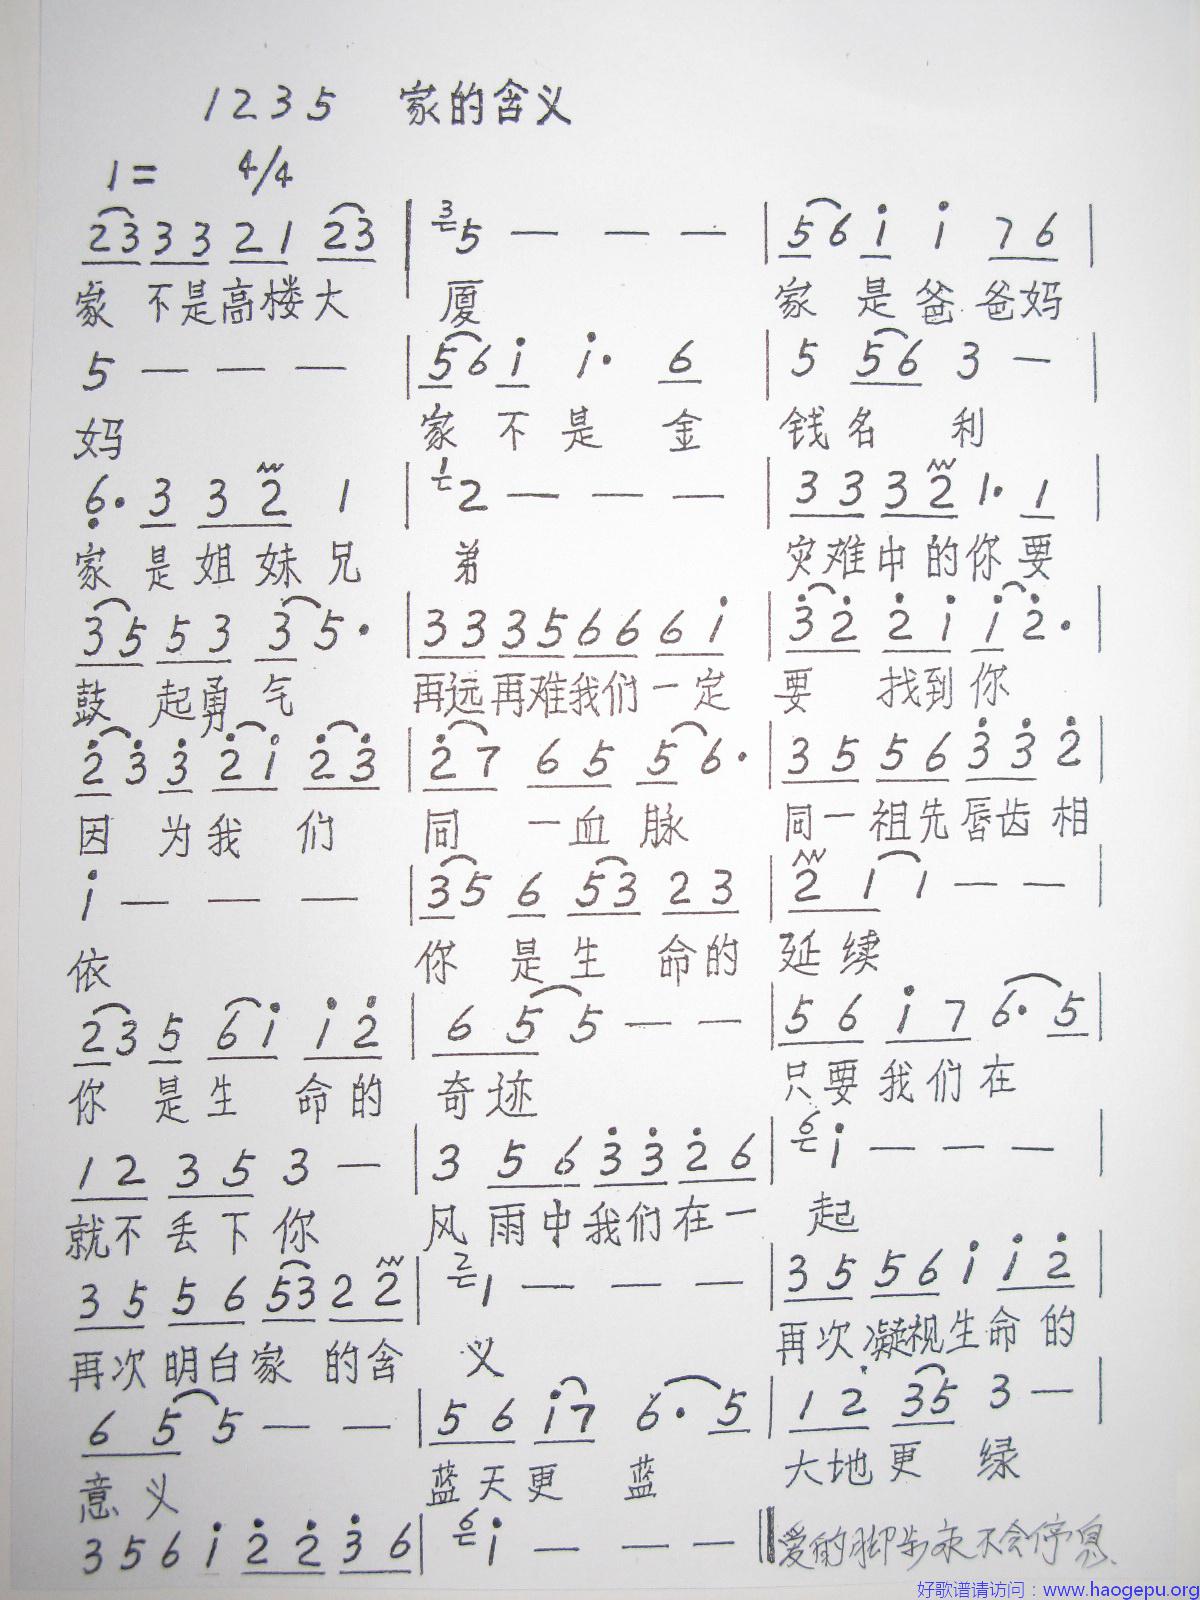 1235 家的含义
1= 4/4
23 33 21 23 | 3 5 — — — | 56 i i 76 |
家 不是高楼大 厦 家 是爸 爸妈
5 — — — | 56 i i· 6 | 5 56 3 — |
妈 家 不是 金 钱名 利
6· 3 32 1 | 1 2 — — — | 33 32 1· 1 |
家 是姐妹兄 弟 灾难中的你要
35 53 35· | 33 35 66 6i | 32 2i i2· |
鼓 起勇 气 再远再难我们一定 要 找到你
23 3 2i 23 | 27 65 56· | 35 56 33 2 |
因 为我 们 同 一血脉 同一祖先唇齿相
i — — — | 35 6 53 23 | 21 1 — — |
依 你 是生 命的 延续
23 5 6i i2 | 65 5 — — | 56 i7 6· 5 |
你 是生 命的 奇迹 只要我们在
12 35 3 — | 3 56 33 26 | 6 i — — — |
就不丢下你 风雨中我们在一 起
35 56 53 22 | 2 1 — — — | 35 56 i i2 |
再次明白家 的含 义 再次凝视生命的
65 5 — — | 56 i7 6· 5 | 12 35 3 — |
意义 蓝天更 蓝 大地更 绿
356i 22 36 | 6 i — — — ‖ 爱的脚步永不会停息.
好歌谱请访问：www.haogepu.org